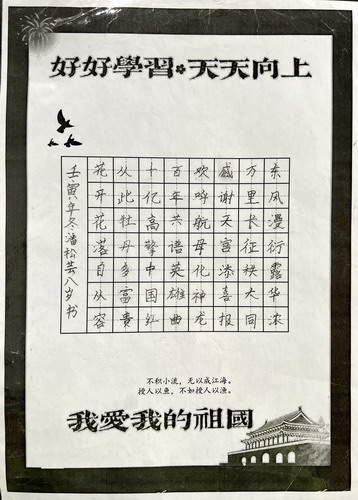 好好學習·天天向上
东风漫衍露华浓
万里长征大同
感谢天宫添喜报
欢呼航母化神龙
百年共谱英雄曲
十亿高擎中国红
从此牡丹多富贵
花开花落自从容
壬寅年冬潘松芸八岁书
不积小流，无以成江海。
授人以鱼，不如授人以渔。
我愛我的祖國